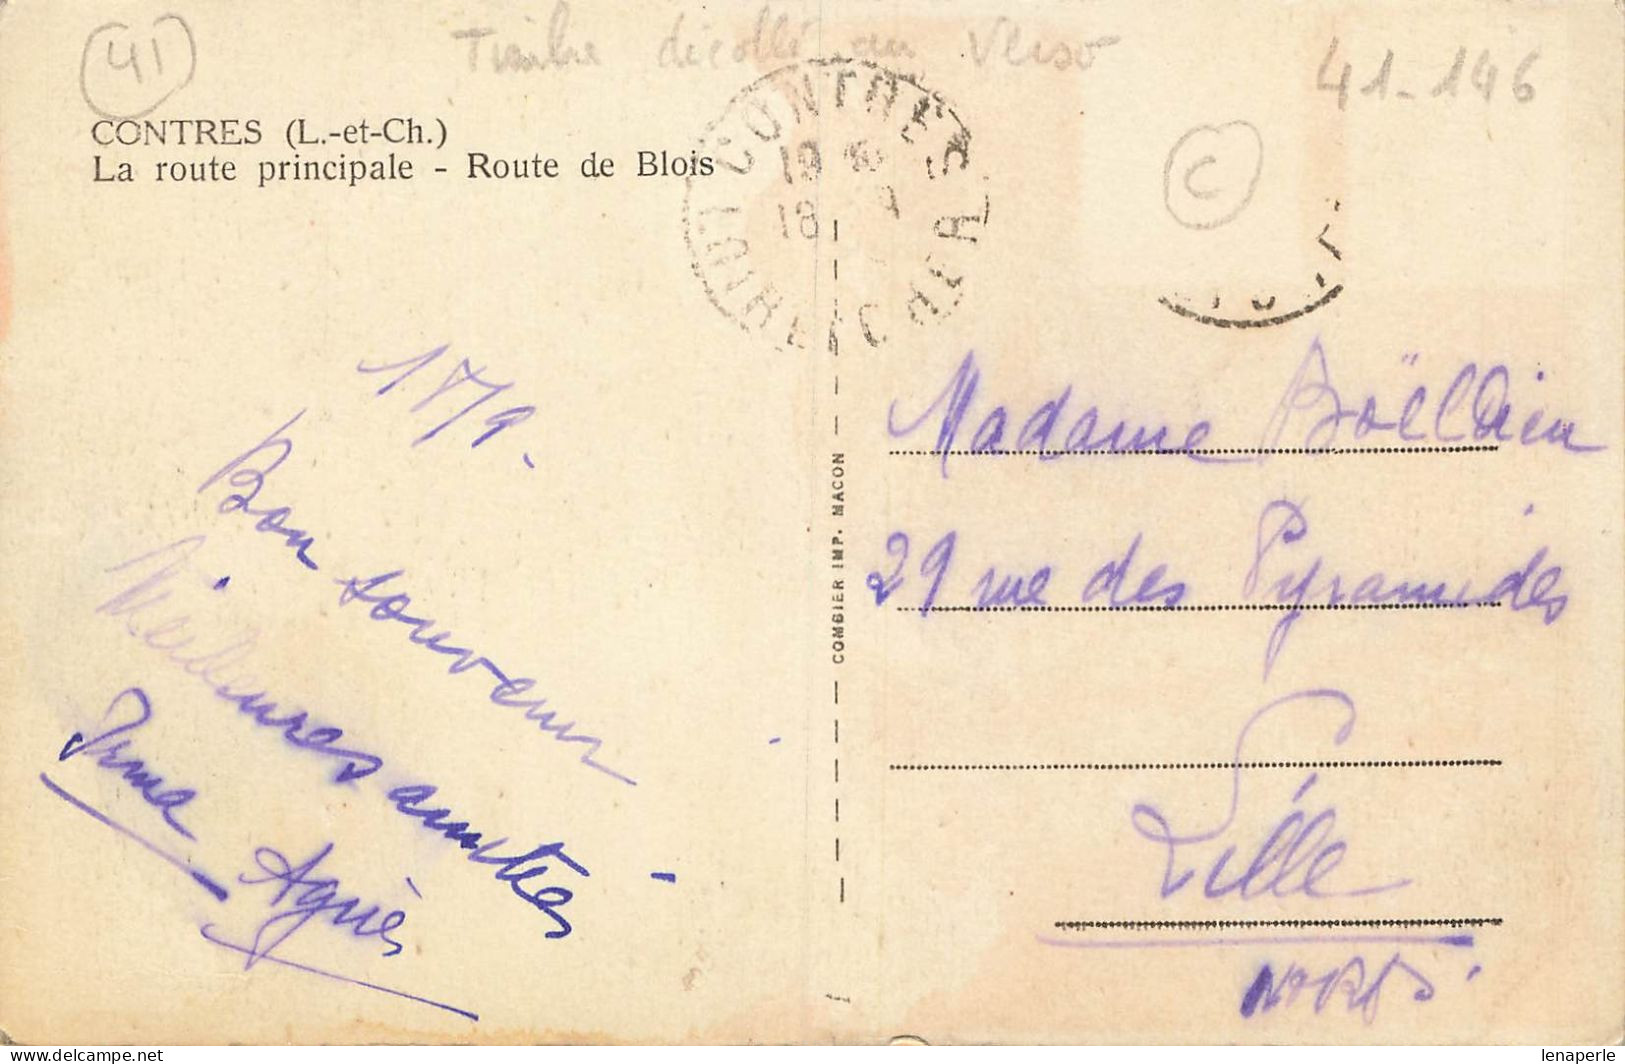 41
Timbre décollé au Verso
41-146
C
CONTRES (L.-et-Ch.)
La route principale - Route de Blois
CONTRES
19
18 9
LOIR ET CHER
17/9.
Bon souvenir
Meilleures amitiés
Irma Agnès
COMBIER IMP. MACON
Madame Boëlldieu
29 rue des Pyramides
Lille
NORD.
lenaperle